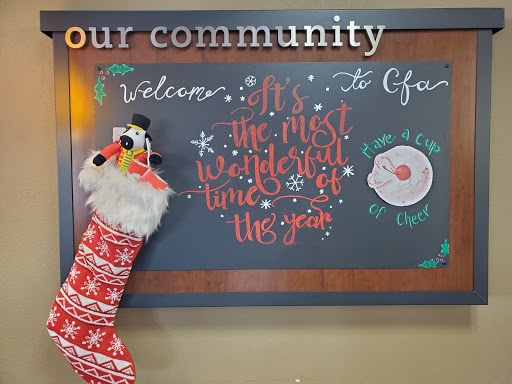 our community
Welcome to Cfa
It's
the most
wonderful
time of
the year
Have a cup
of Cheer